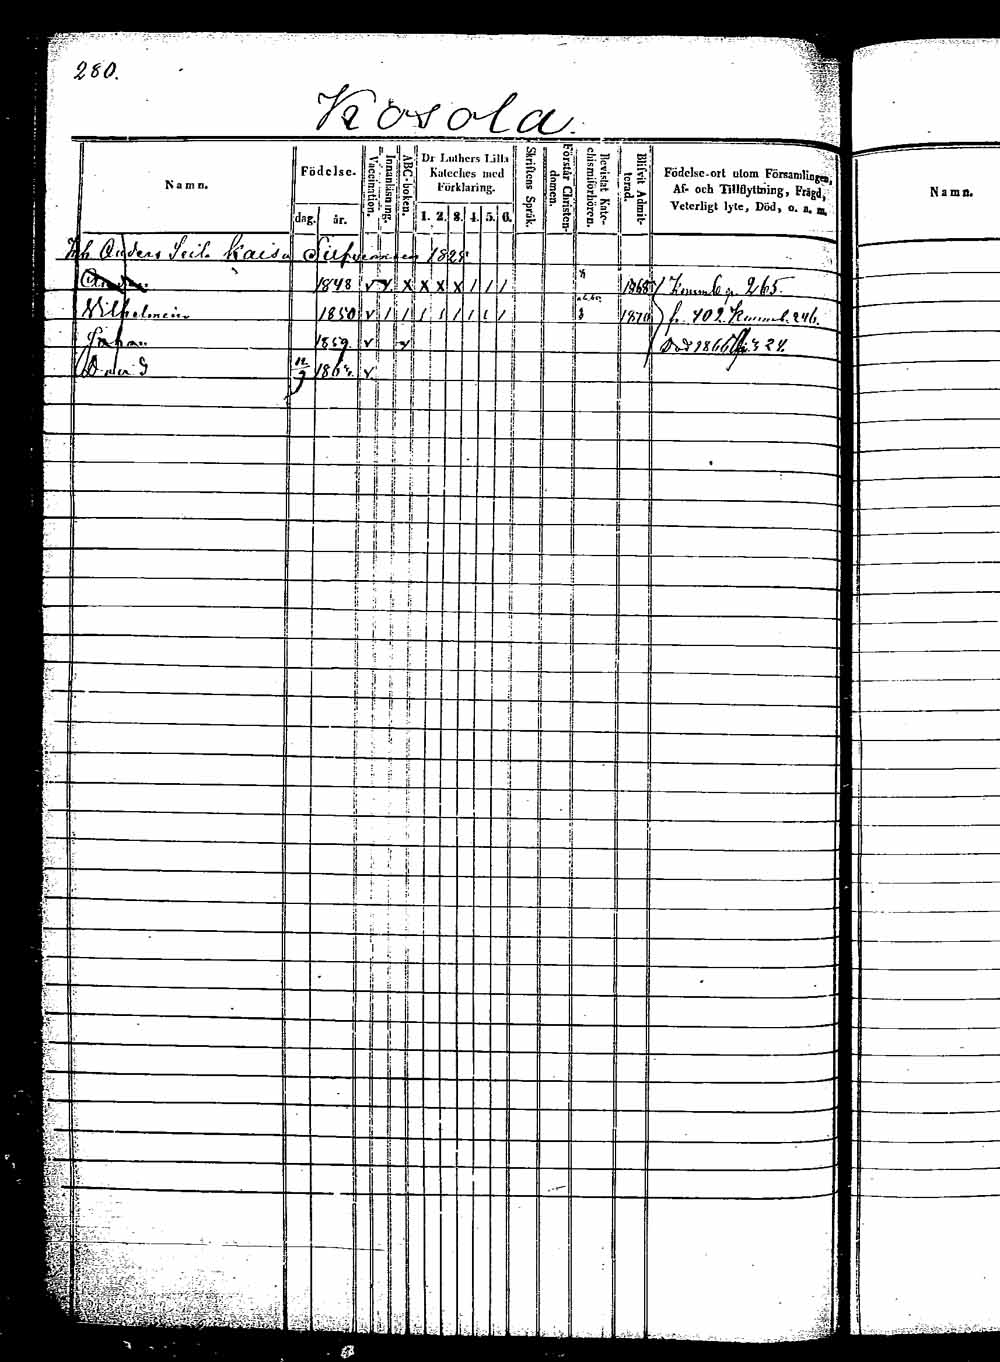 280.
Kosola.
Namn.
Födelse.
dag.
år.
Vaccination.
Innanläsning.
ABC-boken.
Dr Luthers Lilla Kateches med Förklaring.
1. 2. 3. 4. 5. 6.
Skriftens Språk.
Förstår Christendomen.
Bevistat Katechismiförhören.
Blifvit Admitterad.
Födelse-ort utom Församlingen,
Af- och Tillflyttning, Frägd,
Veterligt lyte, Död, o. s. m.
Namn.
Anders Kaisa 1828
1848 v v x x x x / / / 1868 265.
Wilhelmin 1850 v / / / / / / / / 1870 fr. 402. 246.
Johan 1859. v v Död 1866 24.
186 v